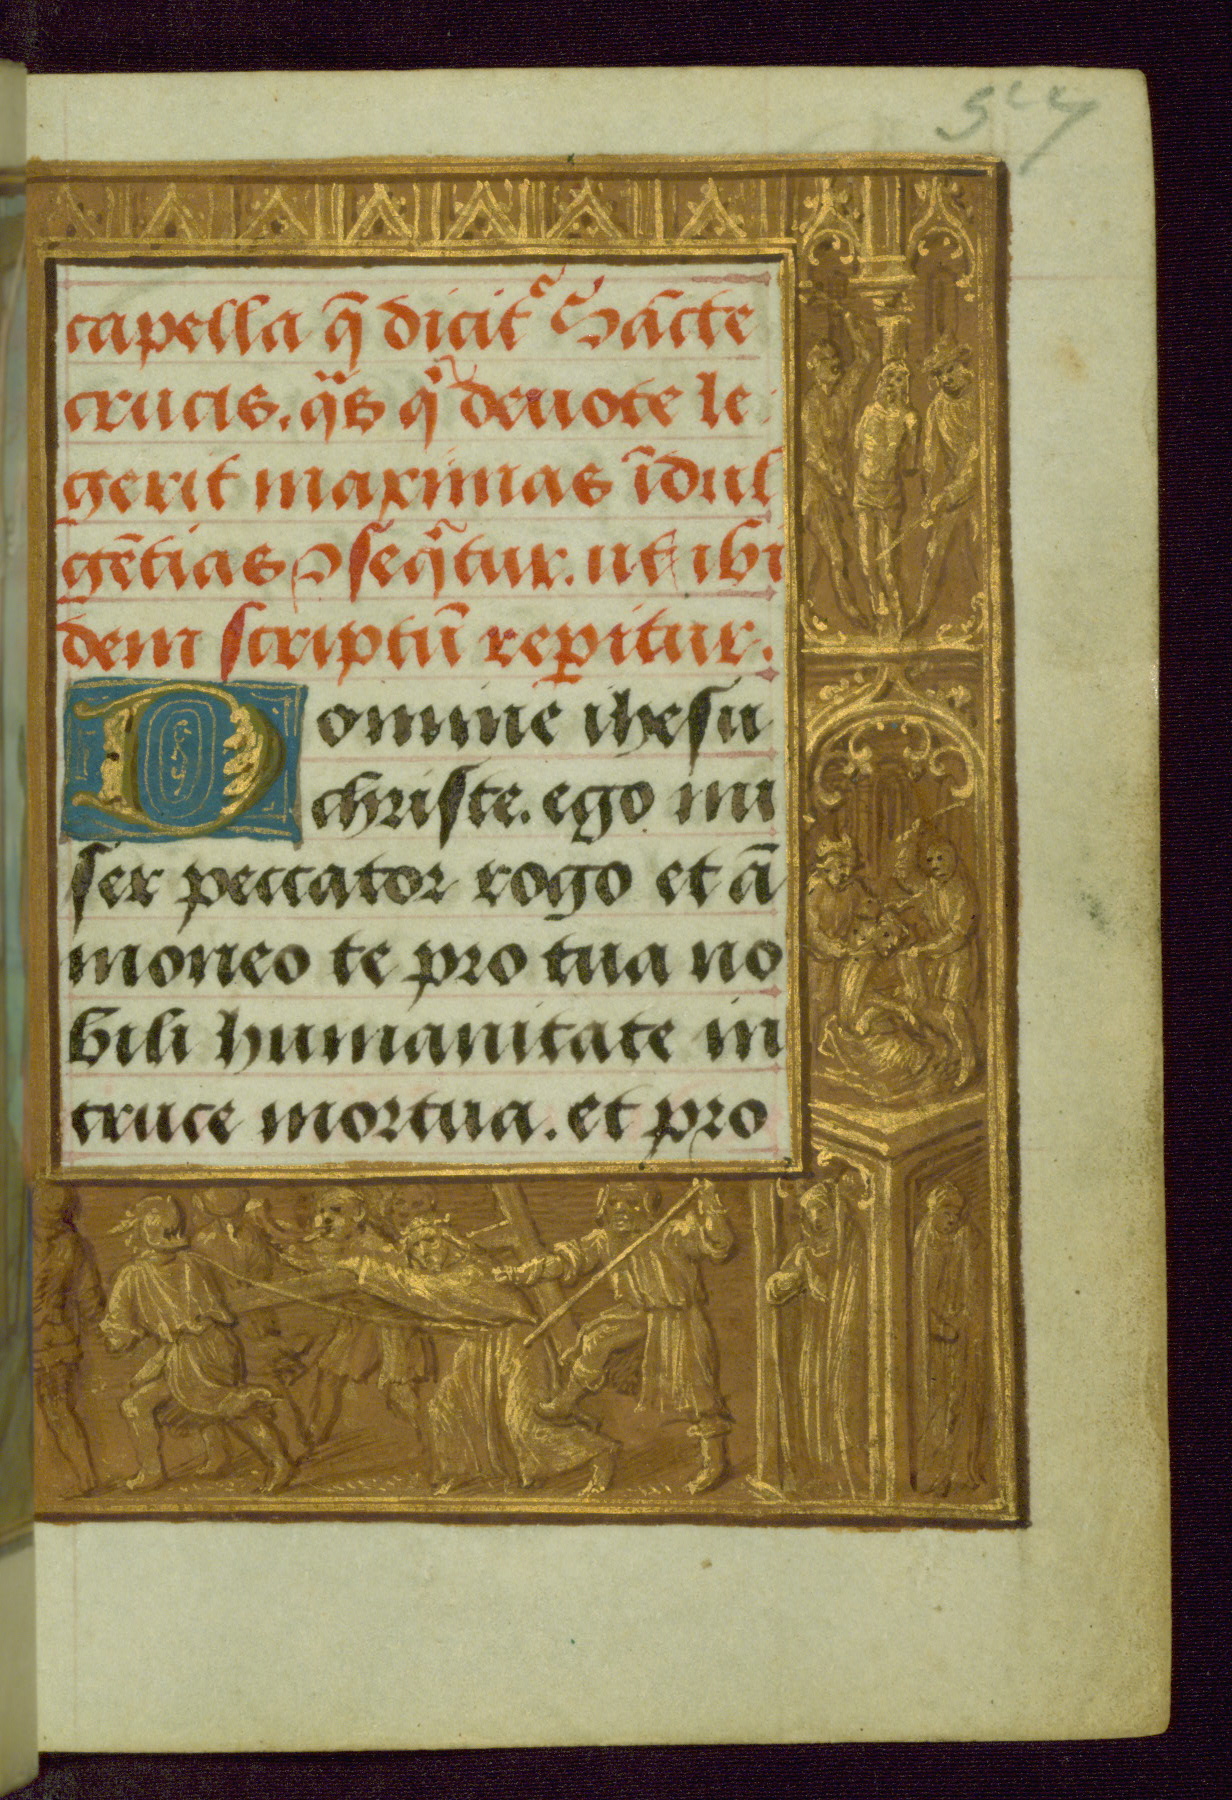 capella q̄ dicit᷑ Sācte
crucis. q̄s q͛ deuote le
gerit maximas īdul
gētias ↄseq͛tur. ut ibi
dem scriptū reꝑitur.
Domine ihesu
christe. ego mi
ser peccator rogo et ā
moneo te pro tua no
bili humanitate in
cruce mortua. et pro